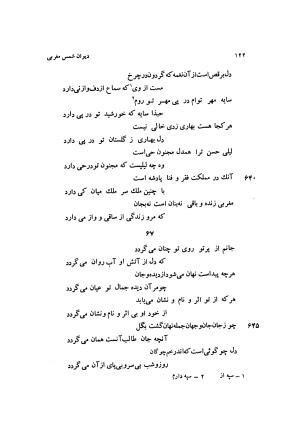 ۱۴۴ دیوان شمس مغربی
دل برقص است از آن نغمه که گردون در چرخ
مست از وی‌ که سماع از دف و از نی دارد
سایه مهر توام در پی مهر تو روم
حبذا سایه که خورشید تو در پی دارد
هر کجا هست بهاری ز دی خالی نیست
دل بهاری ز گلستان تو در پی دارد
لیلی حسن ترا همدل مجنون حی است
وه چه لیلیست که مجنون تو در حی دارد
۶۴۰ آنک در مملکت فقر و فنا پادشه است
با چنین ملک سر ملک کی دارد
مغربی زنده و باقی نه بنان است نه بجان
که مرو زندگی از ساقی و از می دارد
۶۷
جانم از پرتو روی تو چنان می‌گردد
که دل از آتش او آب روان می‌گردد
هرچه پیداست نهان می‌شود از دیده و جان
چو مرآن دیده جمال تو عیان می‌گردد
هر که از تو اثر و نام و نشان می‌یابد
از خود او بی اثر و نام و نشان می‌گردد
۶۴۵ چو ز جان جان و جهان جمله نهان گشت بگل
آنچه جان طالب آنست همان می‌گردد
دل چو گوئی است که اندر خم چوگان
روز و شب بی سر و بی پای از آن می‌گردد
۱ - سپه از ۲ - سپه دارم